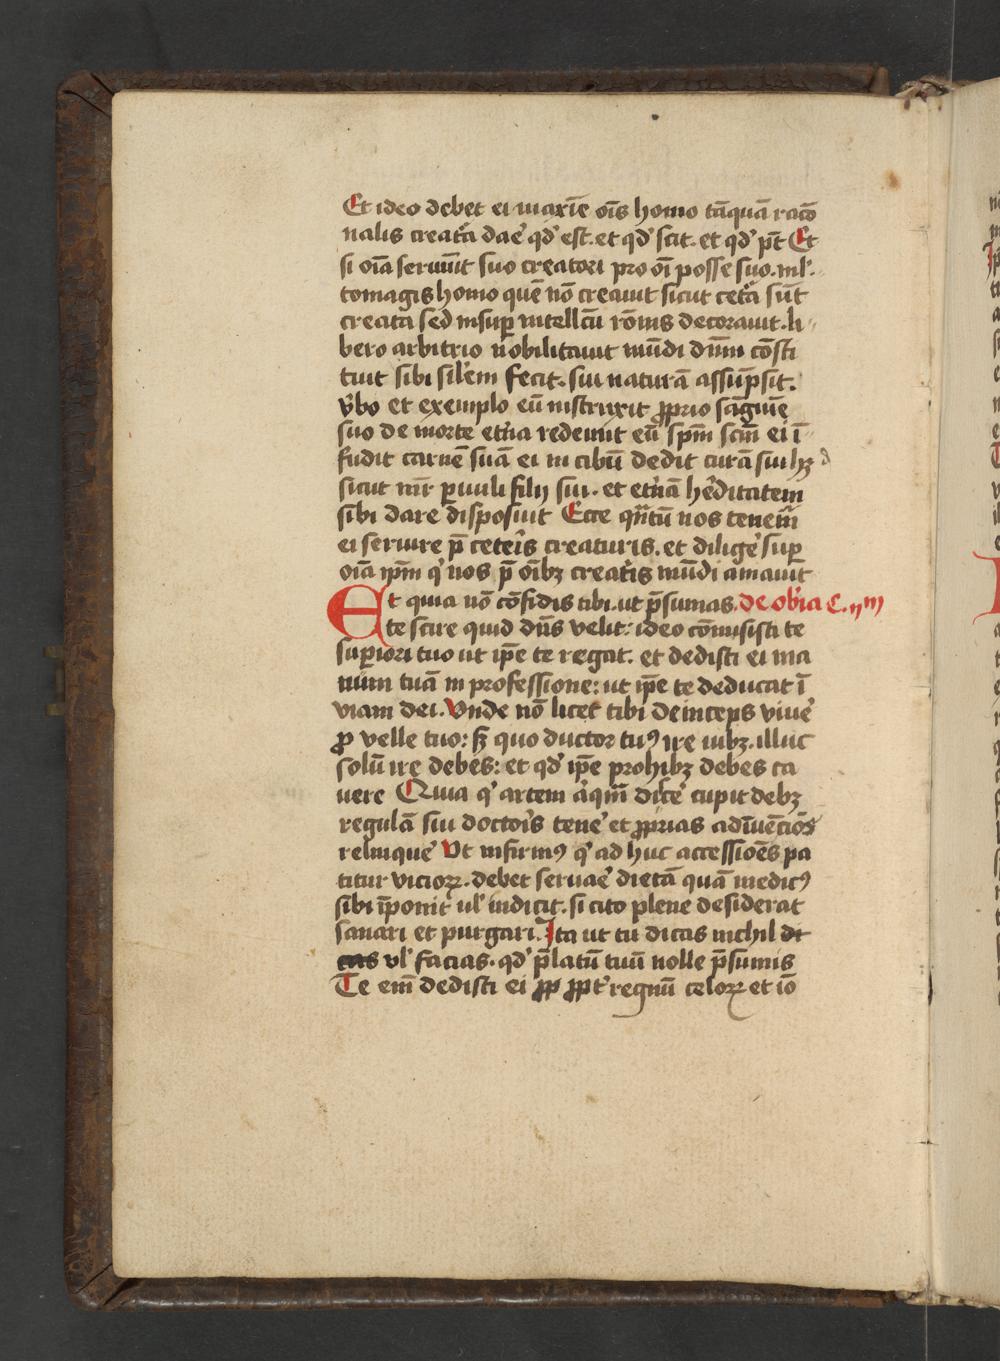 Et ideo debet ei maxīe oīs homo tāquā racō
nalis creata᷒ dae᷒ qd᷒ est. et qd᷒ scit. et qd᷒ pt̄ Et
si oīa seruiūt suo creatori pro oī posse suo. ml᷒
tomagis homo quē nō creauit sicut cetā sūt
creata sed insuꝑ intellcū rōnis decorauit. li
bero arbitrio nobilitauit mūdi dnm̄ cōsti
tuit sibi sil᷒em fecit. sui naturā assūpsit.
v᷒bo et exemplo eū instruxit ꝓprio sāguīe
suo de morte et᷒na redemit eū spm̄ scm̄ ei ī
fudit carnē suā ei in cibū dedit curā sui hꝫ
sicut mr̄ ꝑuuli filij sui. et et᷒nā he᷒ditatem
sibi dare disposuit Ecce qn̄tū nos tenem᷒
ei seruire p̄ cete᷒is creaturis. et dilige᷒ suꝑ
oīa ipm̄ q᷒ nos p̄ oībꝫ creat᷒is mūdi amauit
Et quia nō cōfidis tibi. ut p̄sumas. de ob᷒ia C. iiim
te scire quid dn̄s velit: ideo cōmisisti te
suꝑiori tuo ut ip̄e te regat. et dedisti ei ma
num tuā in professione: ut ip̄e te deducat ī
viam dei. Vnde nō licet tibi deinceps viue᷒
ꝓ velle tuo: sꝫ quo ductor tuꝰ ire iubꝫ. illuc
solū ire debes: et qd᷒ ip̄e prohibꝫ debes ca
uere Quia q᷒ artem a᷒qm̄ di᷒ce᷒ cupit debꝫ
regulā sui docto᷒is tene᷒ et ꝓprias adīuēciōes
relinque᷒ Vt infirmꝰ q᷒ ad huc accessiōēs pa
titur vicioꝝ. debet seruae᷒ dietā quā medicꝰ
sibi īponit ul᷒ indicit. si cito plene desiderat
sanari et purgari. Ita ut tu dicas nichil di
cas vl᷒ facias. qd᷒ p̄latū tuū nolle p̄sumis
Te em̄ dedisti ei ꝓp ꝓpt᷒ regnū celoꝝ et iō